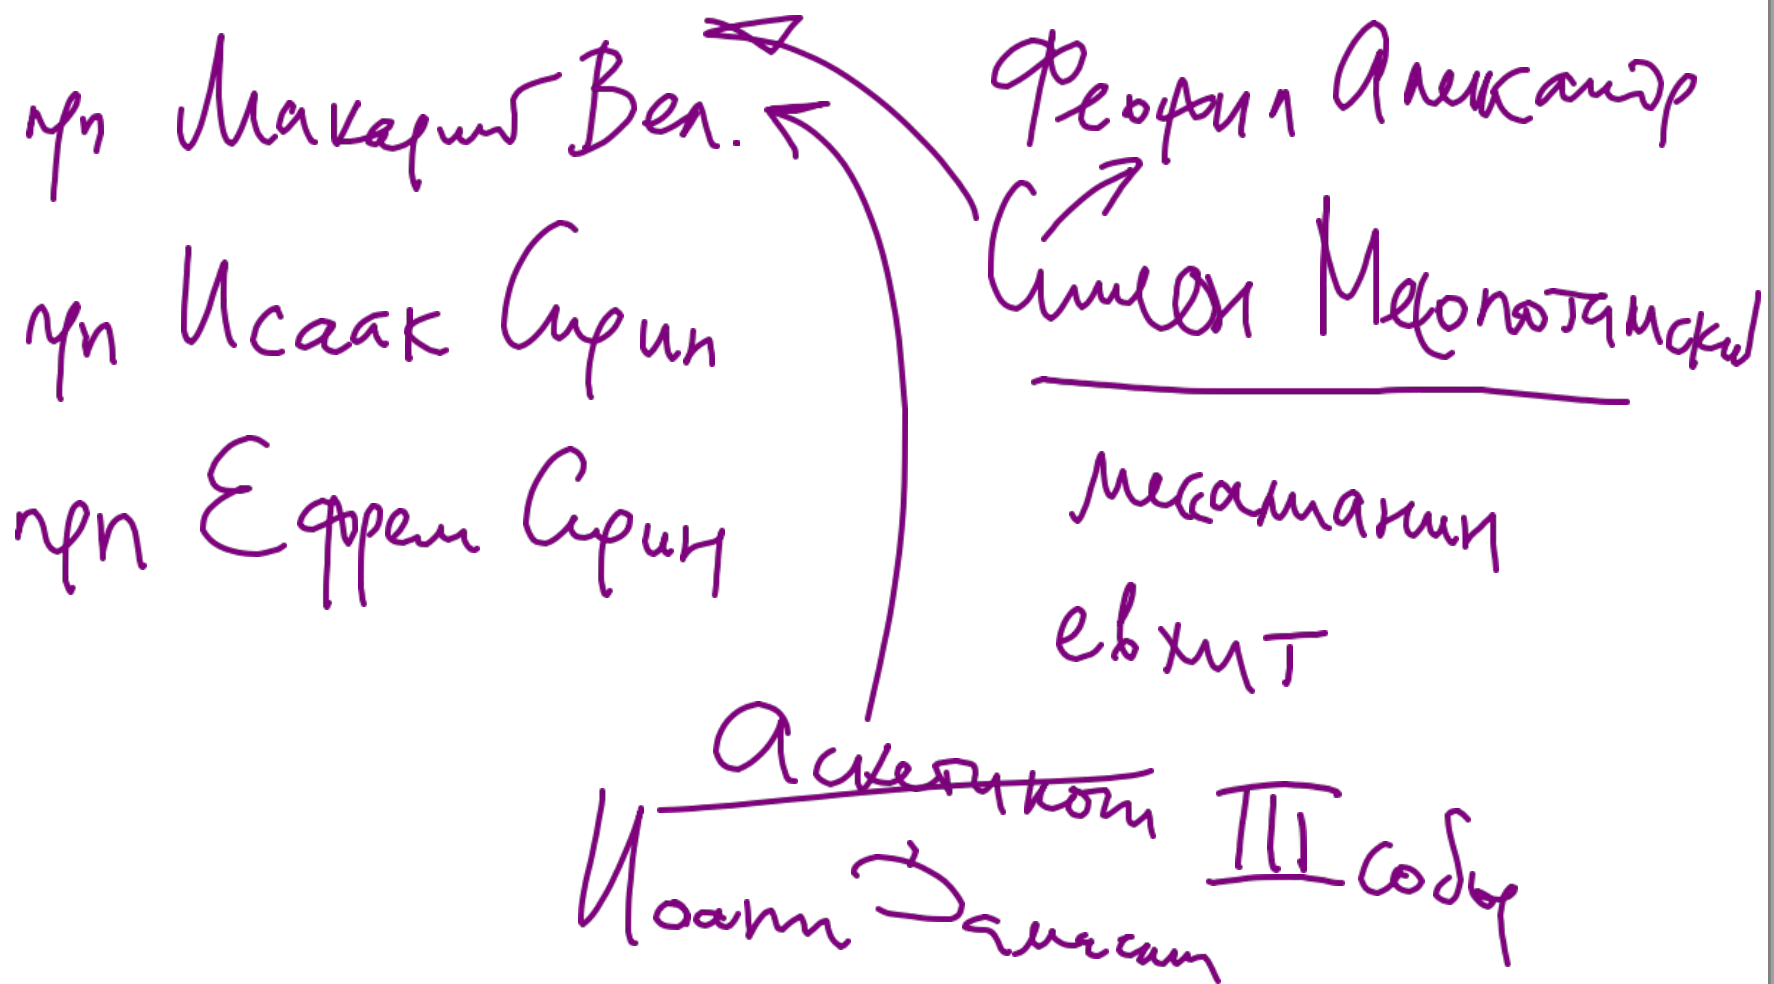 прп Макарий Вел.
прп Исаак Сирин
прп Ефрем Сирин
Феофил Александр
Симеон Месопотамский
мессалианин
евхит
Аскетикон
III собор
Иоанн Дамаскин